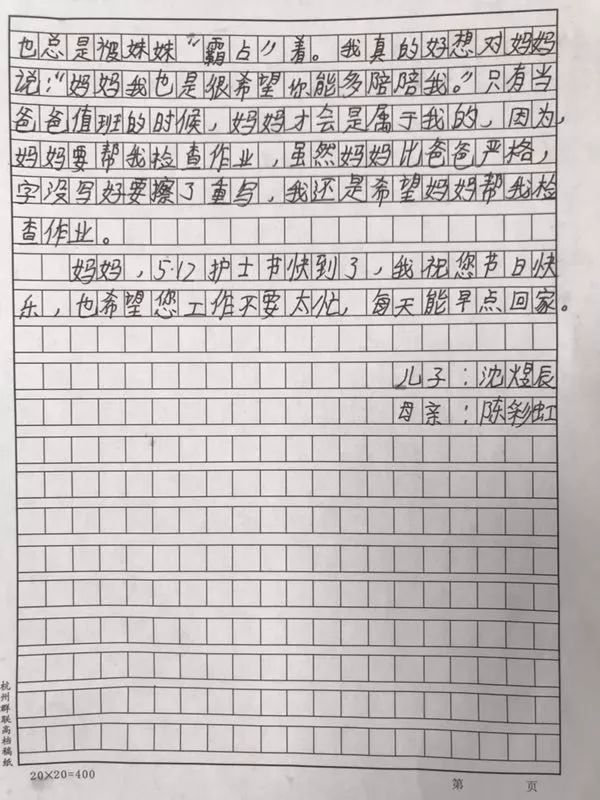 也总是被妹妹“霸占”着。我真的好想对妈妈
说:“妈妈我也是很希望你能多陪陪我。”只有当
爸爸值班的时候，妈妈才会是属于我的，因为，
妈妈要帮我检查作业，虽然妈妈比爸爸严格，
字没写好要擦了重写，我还是希望妈妈帮我检
查作业。
妈妈，5·12护士节快到了，我祝您节日快
乐，也希望您工作不要太忙，每天能早点回家。
儿子：沈煜辰
母亲：陈彩虹
杭州群联高档稿纸
20×20=400
第 页